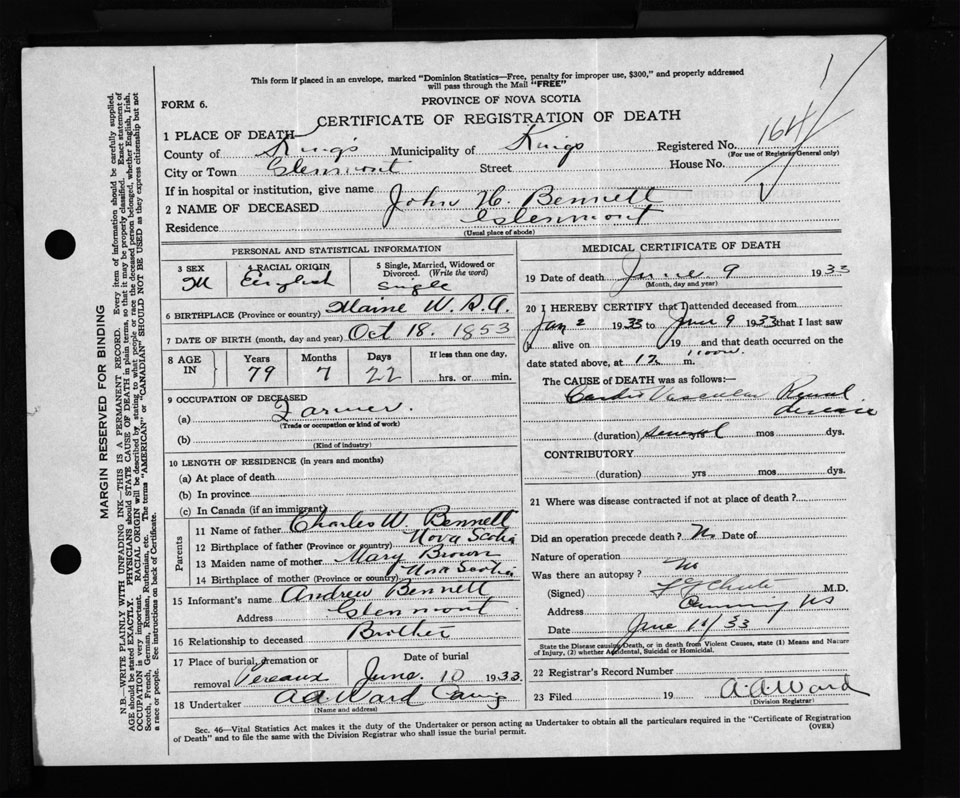 This form if placed in an envelope, marked "Dominion Statistics—Free, penalty for improper use, $300," and properly addressed
will pass through the Mail "FREE"
FORM 6.
PROVINCE OF NOVA SCOTIA
CERTIFICATE OF REGISTRATION OF DEATH
1 PLACE OF DEATH
Registered No. 164
(For use of Registrar General only)
County of King's Municipality of Kings
City or Town Glenmont Street House No.
If in hospital or institution, give name
2 NAME OF DECEASED John H. Bennett
Residence Glenmont
(Usual place of abode)
PERSONAL AND STATISTICAL INFORMATION
3 SEX M
4 RACIAL ORIGIN English
5 Single, Married, Widowed or Divorced. (Write the word) Single
6 BIRTHPLACE (Province or country) Maine U.S.A.
7 DATE OF BIRTH (month, day and year) Oct 18. 1853
8 AGE IN Years 79 Months 7 Days 22 If less than one day, hrs. or min.
9 OCCUPATION OF DECEASED
(a) Farmer.
(Trade or occupation or kind of work)
(b)
(Kind of industry)
10 LENGTH OF RESIDENCE (in years and months)
(a) At place of death
(b) In province
(c) In Canada (if an immigrant)
Parents
11 Name of father Charles W. Bennett
12 Birthplace of father (Province or country) Nova Scotia
13 Maiden name of mother Mary Brown
14 Birthplace of mother (Province or country) Nova Scotia
15 Informant's name Andrew Bennett
Address Glenmont
16 Relationship to deceased Brother
17 Place of burial, cremation or removal Pereaux
Date of burial June 10 1933.
18 Undertaker A A Ward Canning
(Name and address)
MEDICAL CERTIFICATE OF DEATH
19 Date of death June 9 1933
(Month, day and year)
20 I HEREBY CERTIFY that I attended deceased from
Jan 2 1933 to June 9 1933 that I last saw
h alive on 19 and that death occurred on the
date stated above, at 12 noon m.
The CAUSE of DEATH was as follows:—
Cardio Vascular Renal
disease
(duration) several mos dys.
CONTRIBUTORY
(duration) yrs mos dys.
21 Where was disease contracted if not at place of death?
Did an operation precede death? No Date of
Nature of operation
Was there an autopsy? No
(Signed) M.D.
Address Canning NS
Date June 10/33
State the Disease causing Death, or in death from Violent Causes, state (1) Means and Nature
of Injury, (2) whether Accidental, Suicidal or Homicidal.
22 Registrar's Record Number
23 Filed 19 A. A. Ward
(Division Registrar)
Sec. 46—Vital Statistics Act makes it the duty of the Undertaker or person acting as Undertaker to obtain all the particulars required in the "Certificate of Registration
of Death" and to file the same with the Division Registrar who shall issue the burial permit.
(OVER)
MARGIN RESERVED FOR BINDING
N.B.—WRITE PLAINLY WITH UNFADING INK—THIS IS A PERMANENT RECORD. Every item of information should be carefully supplied.
AGE should be stated EXACTLY. PHYSICIANS should STATE CAUSE OF DEATH in plain terms, so that it may be properly classified. Exact statement of
OCCUPATION is very important. RACIAL ORIGIN will be described by stating to what people or race the deceased person belonged, whether English, Irish,
Scotch, French, German, Russian, Ruthenian, etc. The terms "AMERICAN" or "CANADIAN" SHOULD NOT BE USED as they express citizenship but not
a race or people. See instructions on back of Certificate.